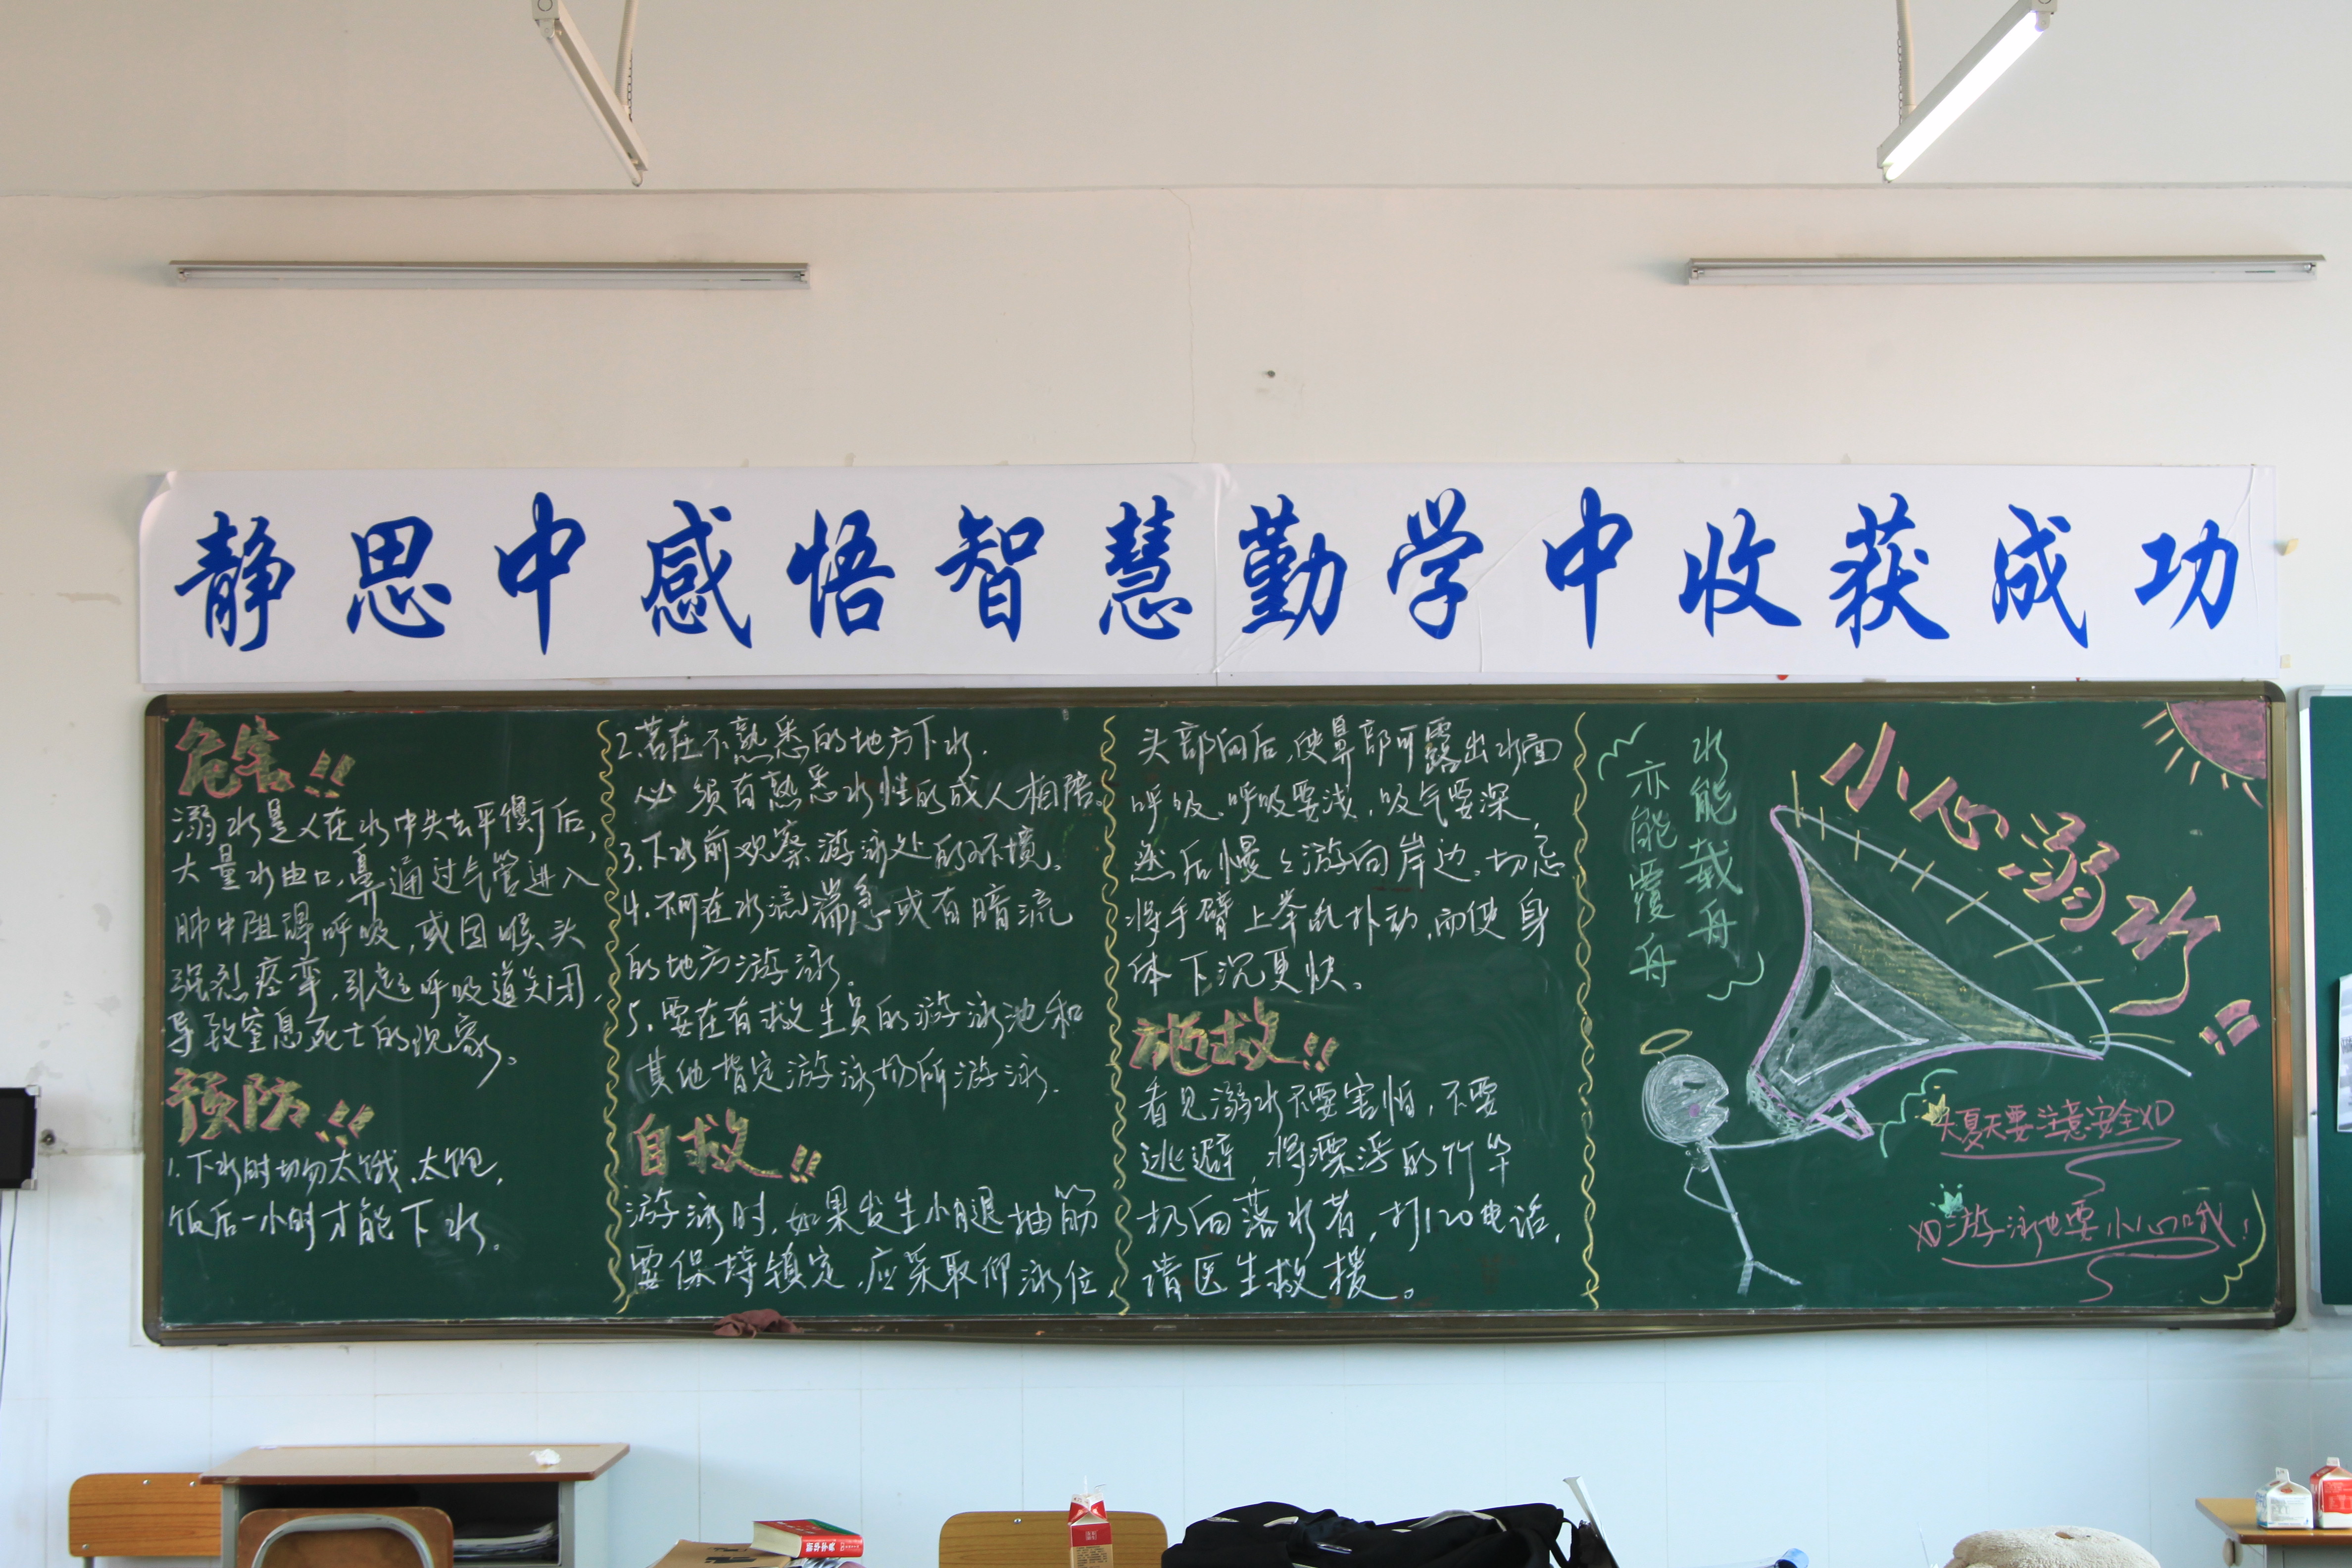 静思中感悟智慧勤学中收获成功
危害!!
溺水是人在水中失去平衡后,
大量水由口,鼻通过气管进入
肺中阻碍呼吸,或因喉头
强烈痉挛,引起呼吸道关闭,
导致窒息死亡的现象。
预防!!
1.下水时切勿太饿、太饱,
饭后一小时才能下水。
2.若在不熟悉的地方下水.
必须有熟悉水性的成人相陪。
3.下水前观察游泳处的环境。
4.不可在水流湍急或有暗流
的地方游泳。
5.要在有救生员的游泳池和
其他指定游泳场所游泳.
自救!!
游泳时,如果发生小腿抽筋
要保持镇定,应采取仰泳位,
头部向后,使鼻部可露出水面
呼吸、呼吸要浅,吸气要深,
然后慢々游向岸边。切忌
将手臂上举乱扑动,而使身
体下沉更快。
施救!!
看见溺水不要害怕,不要
逃避,将漂浮的竹竿
扔向落水者,打120电话,
请医生救援。
水能载舟
亦能覆舟
小心溺水!!
夏天要注意安全XD
XD游泳也要小心哦!